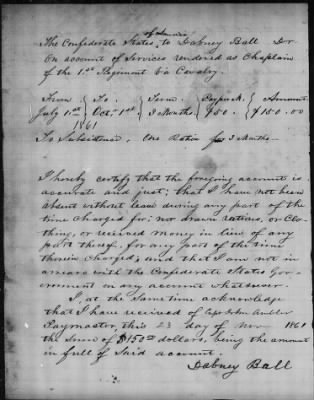 of America
The Confederate States, to Dabney Ball Dr
On account of Services rendered as Chaplain
of the 1.st Regiment Va Cavalry.
From } To } Term } Pay pr M. } Amount
July 1st } Oct. 1st } 3 Months } $50. } $150.00
1861
To Subsistence, One Ration for 3 Months
I hereby certify that the foregoing account is
accurate and just; that I have not been
absent without leave during any part of the
time charged for; nor drawn rations, or Clo-
thing, or received money in lieu of any
part thereof, for any part of the time
therein charged; and that I am not in
arrears with the Confederate States Gov-
ernment on any account whatsoever.
I, at the Same time acknowledge
that I have received of Capt John
Paymaster, this 23 day of Nov 1861
the Sum of $150.00 dollars, being the amount
in full of Said account.
Dabney Ball